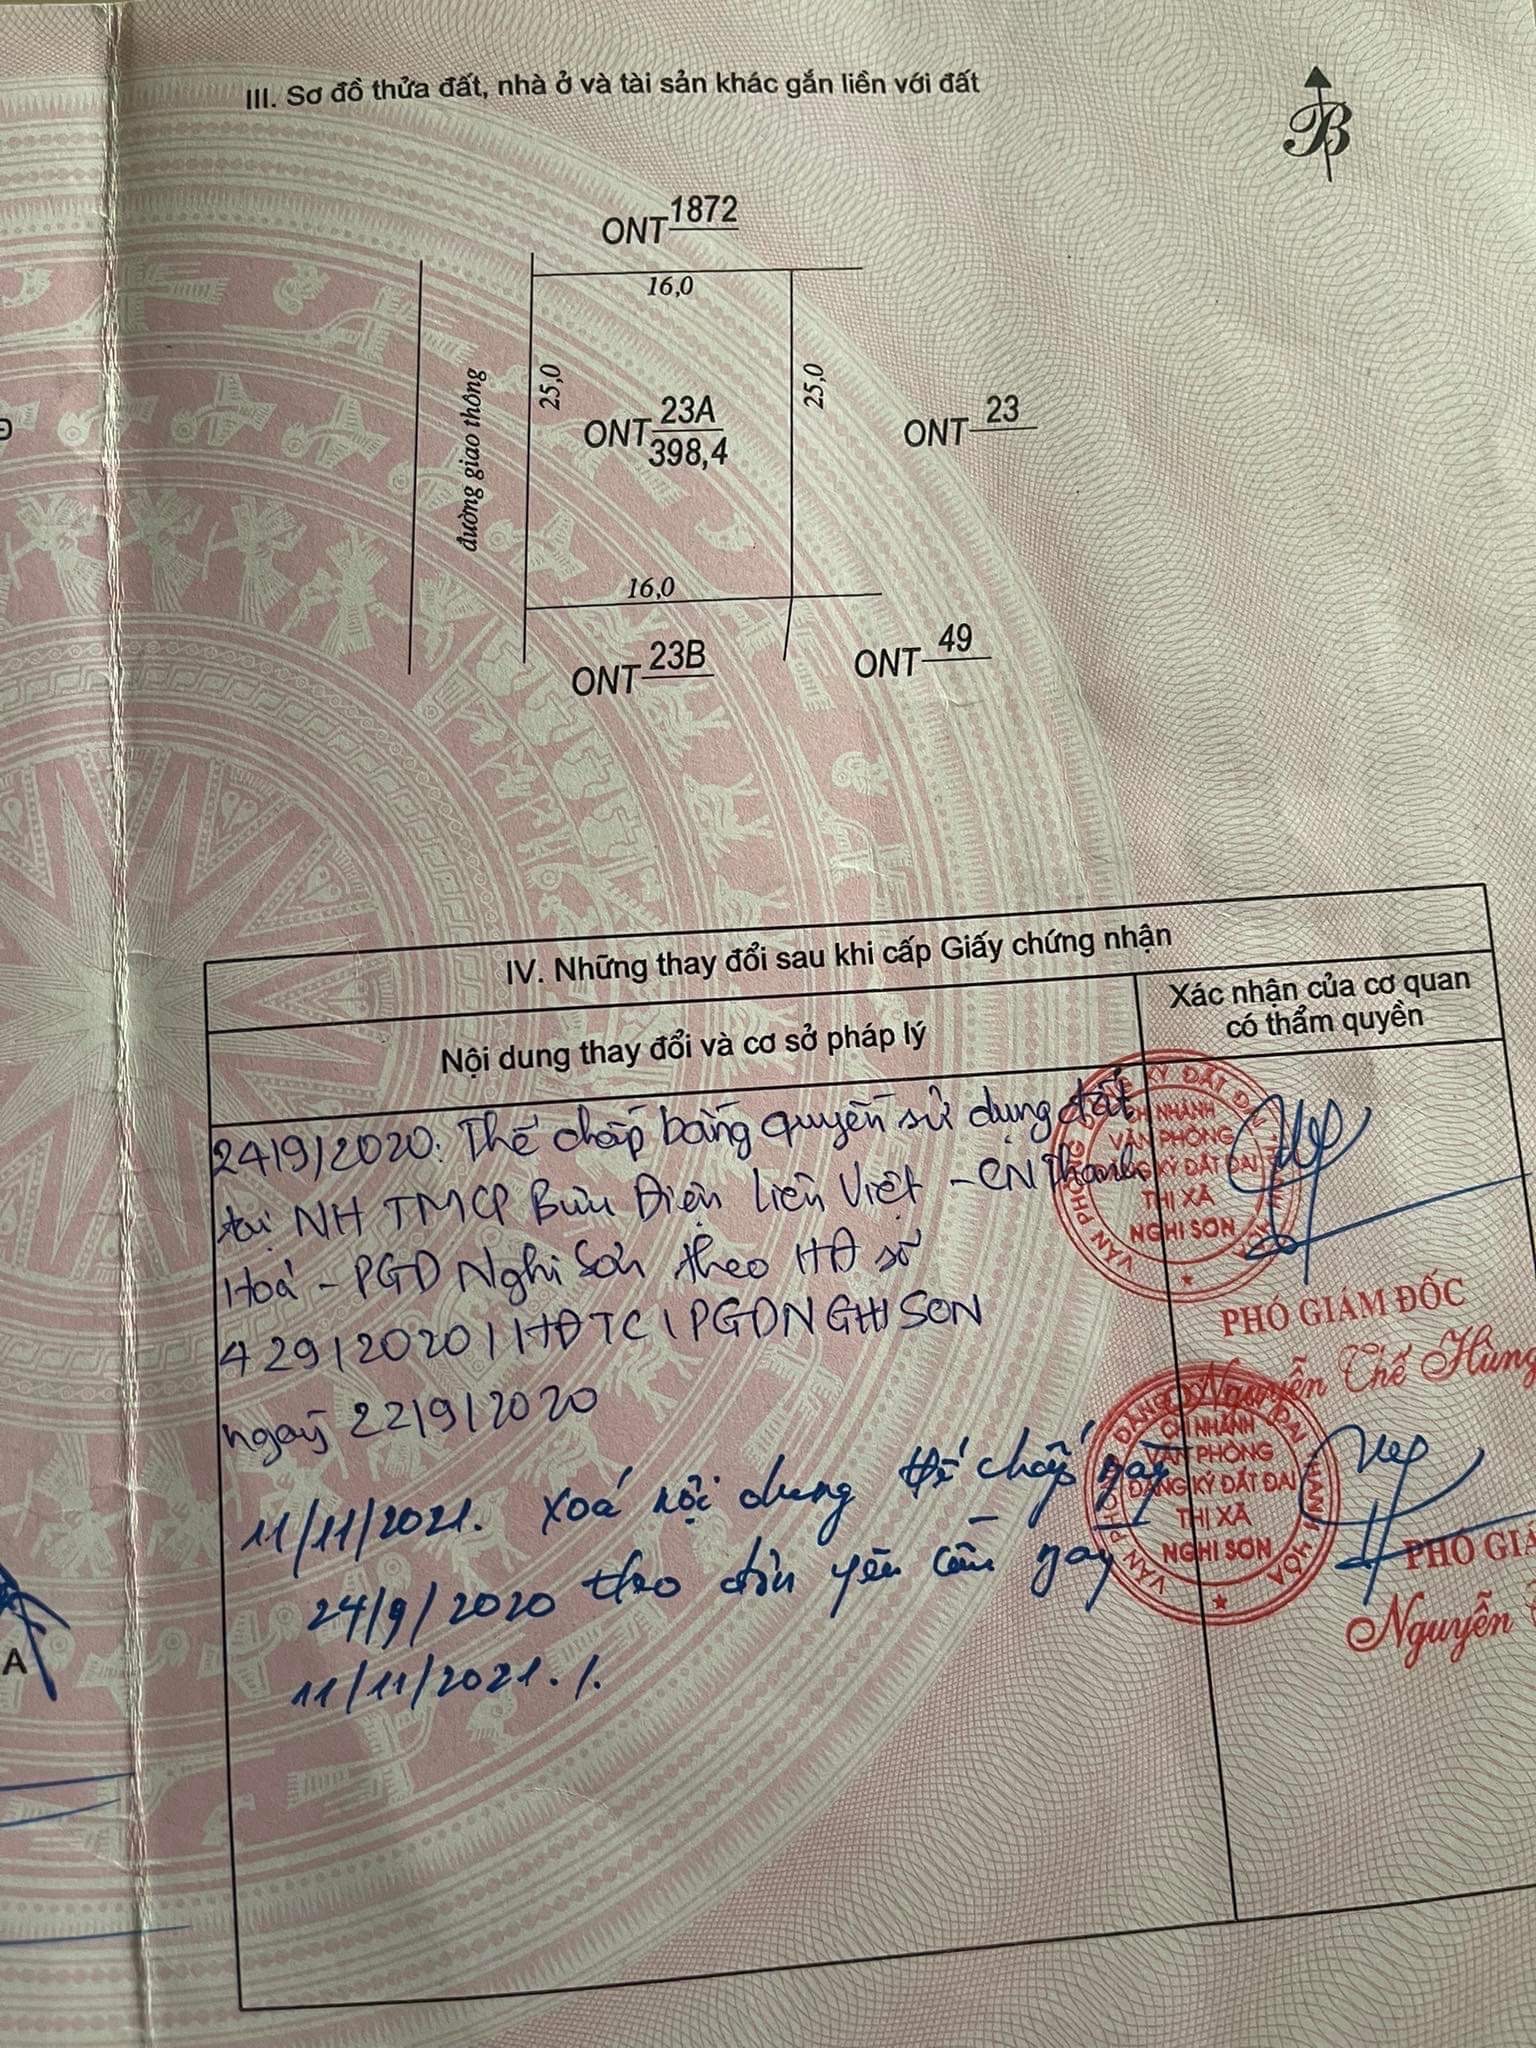 III. Sơ đồ thửa đất, nhà ở và tài sản khác gắn liền với đất
B
ONT 1872
16,0
đường giao thông
25,0
25,0
ONT 23A
398,4
ONT 23
16,0
ONT 23B
ONT 49
IV. Những thay đổi sau khi cấp Giấy chứng nhận
Nội dung thay đổi và cơ sở pháp lý
Xác nhận của cơ quan
có thẩm quyền
24/9/2020: Thế chấp bằng quyền sử dụng đất
tại NH TMCP Bưu Điện Liên Việt - CN Thanh
Hoá - PGD Nghi Sơn theo HĐ số
429/2020/HĐTC/PGDNGHISON
ngày 22/9/2020
CHI NHÁNH
VĂN PHÒNG
ĐĂNG KÝ ĐẤT ĐAI
THỊ XÃ
NGHI SƠN
PHÓ GIÁM ĐỐC
Nguyễn Thế Hùng
11/11/2021. Xoá nội dung thế chấp ngày
24/9/2020 theo đơn yêu cầu ngày
11/11/2021./.
CHI NHÁNH
VĂN PHÒNG
ĐĂNG KÝ ĐẤT ĐAI
THỊ XÃ
NGHI SƠN
PHÓ GIÁ
Nguyễn
A